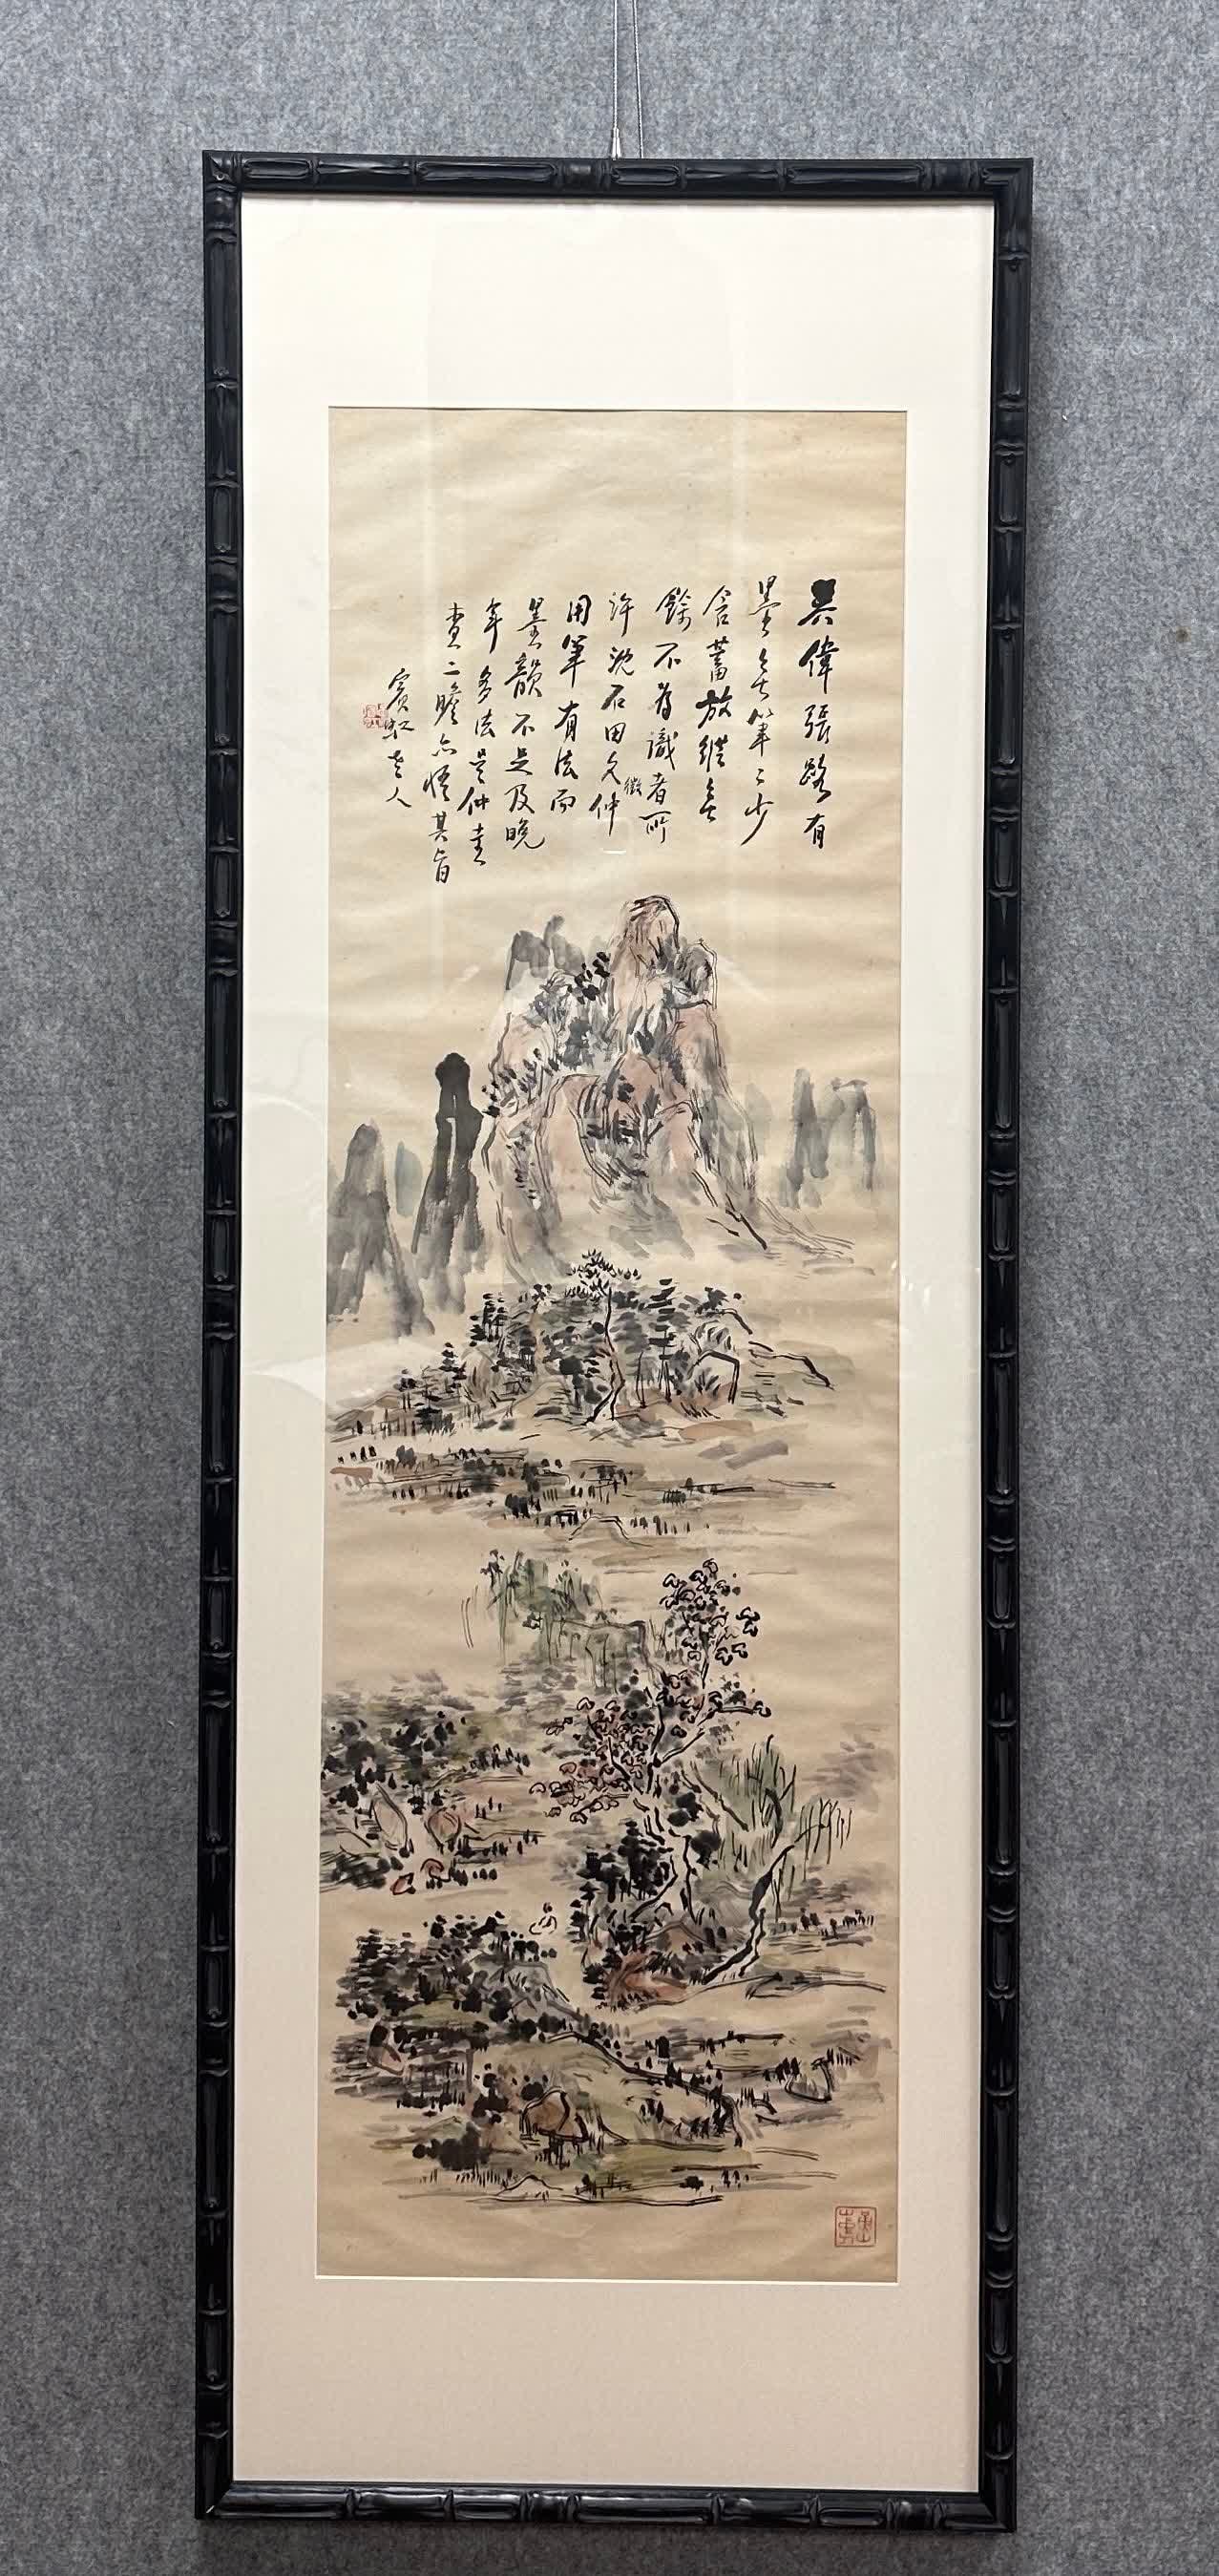 吳偉張路有
墨無筆筆少
含蓄放縱有
餘不為識者所
許沈石田文徵仲
用筆有法而
墨韻不足及晚
年多法吳仲圭
查二瞻亦悟其旨
賓虹老人